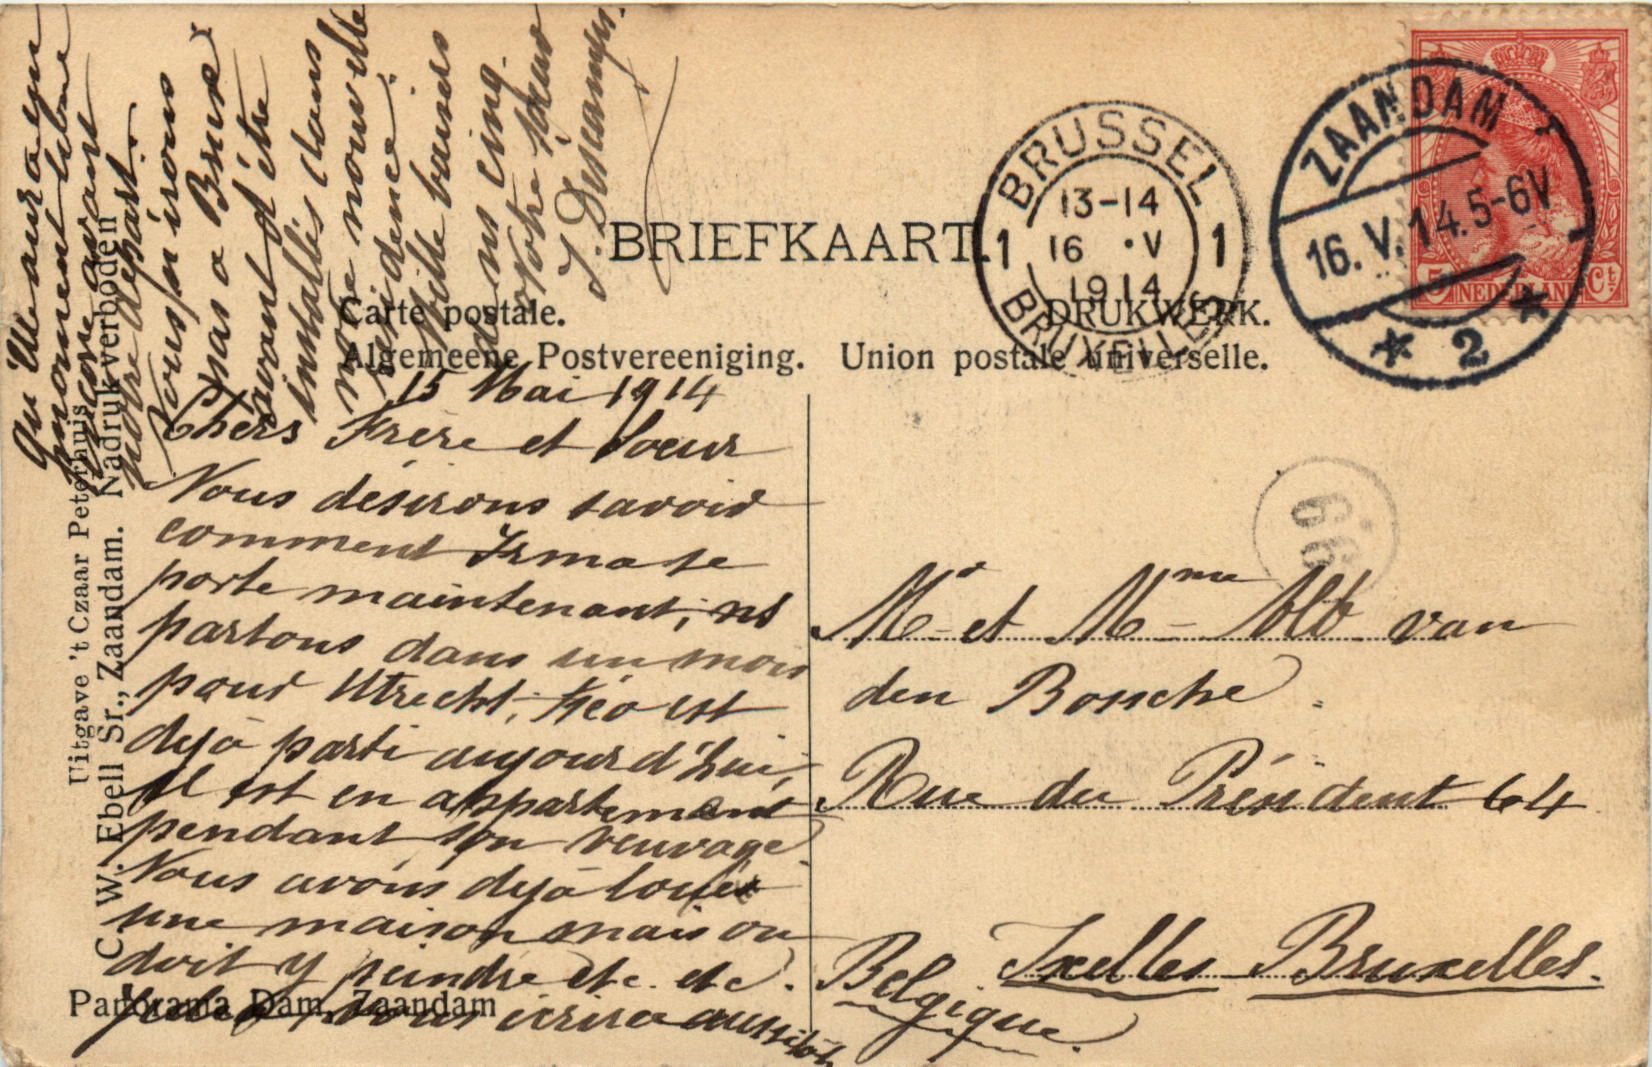 BRIEFKAART.
Carte postale.
DRUKWERK.
Algemeene Postvereeniging. Union postale universelle.
BRUSSEL
13-14
1 16 · V 1
1914
BRUXELLES
ZAANDAM
16. V. 14. 5-6V
* 2 *
5 NEDERLAND Ct
66
Uitgave 't Czaar Peterhuis
C. W. Ebell Sr., Zaandam. Nadruk verboden
Panorama Dam, Zaandam
15 Mai 1914
Chers Frère et Soeur
Nous désirons savoir
comment Irma se
porte maintenant; ns
partons dans un mois
pour Utrecht; Héo est
déjà parti aujourd'hui,
Il est en appartement
pendant son veuvage
Nous avons déjà louer
une maison mais on
doit y peindre etc. etc.
vous écrira aussitôt
qu'elle aura un
moment
encore avant
notre départ.
Nous n'irons
pas a Brux
avant d'être
installés dans
notre nouvelle
résidence.
Mille baisers
de ns cinq.
Votre soeur
J. Descamps.
Mr et Mme Alb. van
den Bossche.
Rue du Président 64
Ixelles Bruxelles.
Belgique.